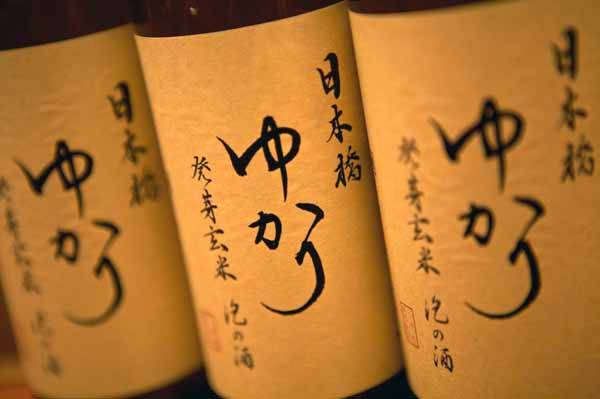 日本橋
ゆかり
発芽玄米 泡の酒
日本橋
ゆかり
発芽玄米 泡の酒
日本橋
ゆかり
発芽玄米 泡の酒